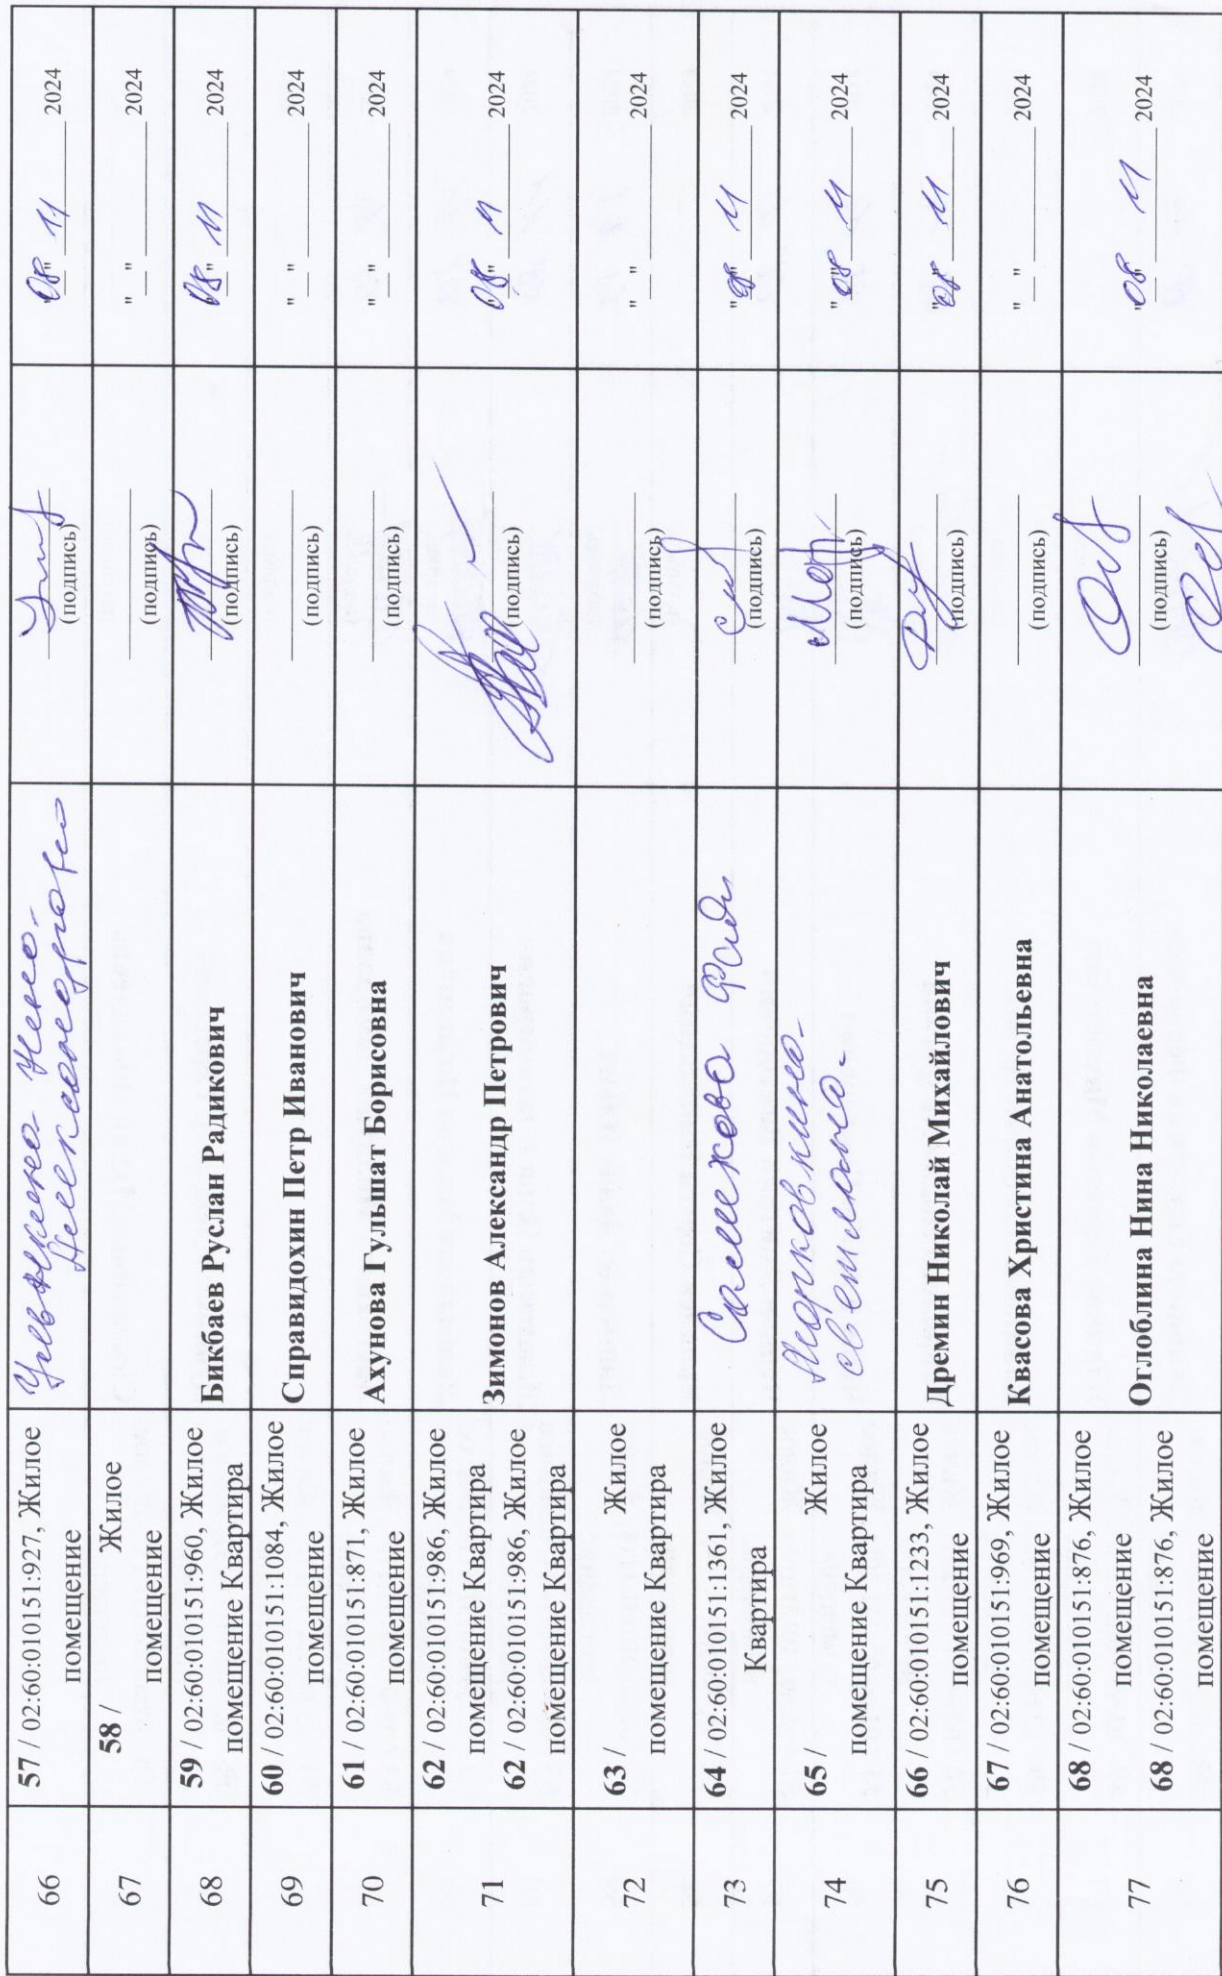 66
57 / 02:60:010151:927, Жилое
помещение
Нина-
(подпись)
"08" 11 2024
67
58 / Жилое
помещение
(подпись)
"__" ______ 2024
68
59 / 02:60:010151:960, Жилое
помещение Квартира
Бикбаев Руслан Радикович
(подпись)
"08" 11 2024
69
60 / 02:60:010151:1084, Жилое
помещение
Справидохин Петр Иванович
(подпись)
"__" ______ 2024
70
61 / 02:60:010151:871, Жилое
помещение
Ахунова Гульшат Борисовна
(подпись)
"__" ______ 2024
71
62 / 02:60:010151:986, Жилое
помещение Квартира
62 / 02:60:010151:986, Жилое
помещение Квартира
Зимонов Александр Петрович
(подпись)
"08" 11 2024
72
63 / Жилое
помещение Квартира
(подпись)
"__" ______ 2024
73
64 / 02:60:010151:1361, Жилое
Квартира
Салихова
(подпись)
"08" 11 2024
74
65 / Жилое
помещение Квартира
Морковкина-
Светлана-
(подпись)
"08" 11 2024
75
66 / 02:60:010151:1233, Жилое
помещение
Дремин Николай Михайлович
(подпись)
"08" 11 2024
76
67 / 02:60:010151:969, Жилое
помещение
Квасова Христина Анатольевна
(подпись)
"__" ______ 2024
77
68 / 02:60:010151:876, Жилое
помещение
68 / 02:60:010151:876, Жилое
помещение
Оглоблина Нина Николаевна
(подпись)
"08" 11 2024